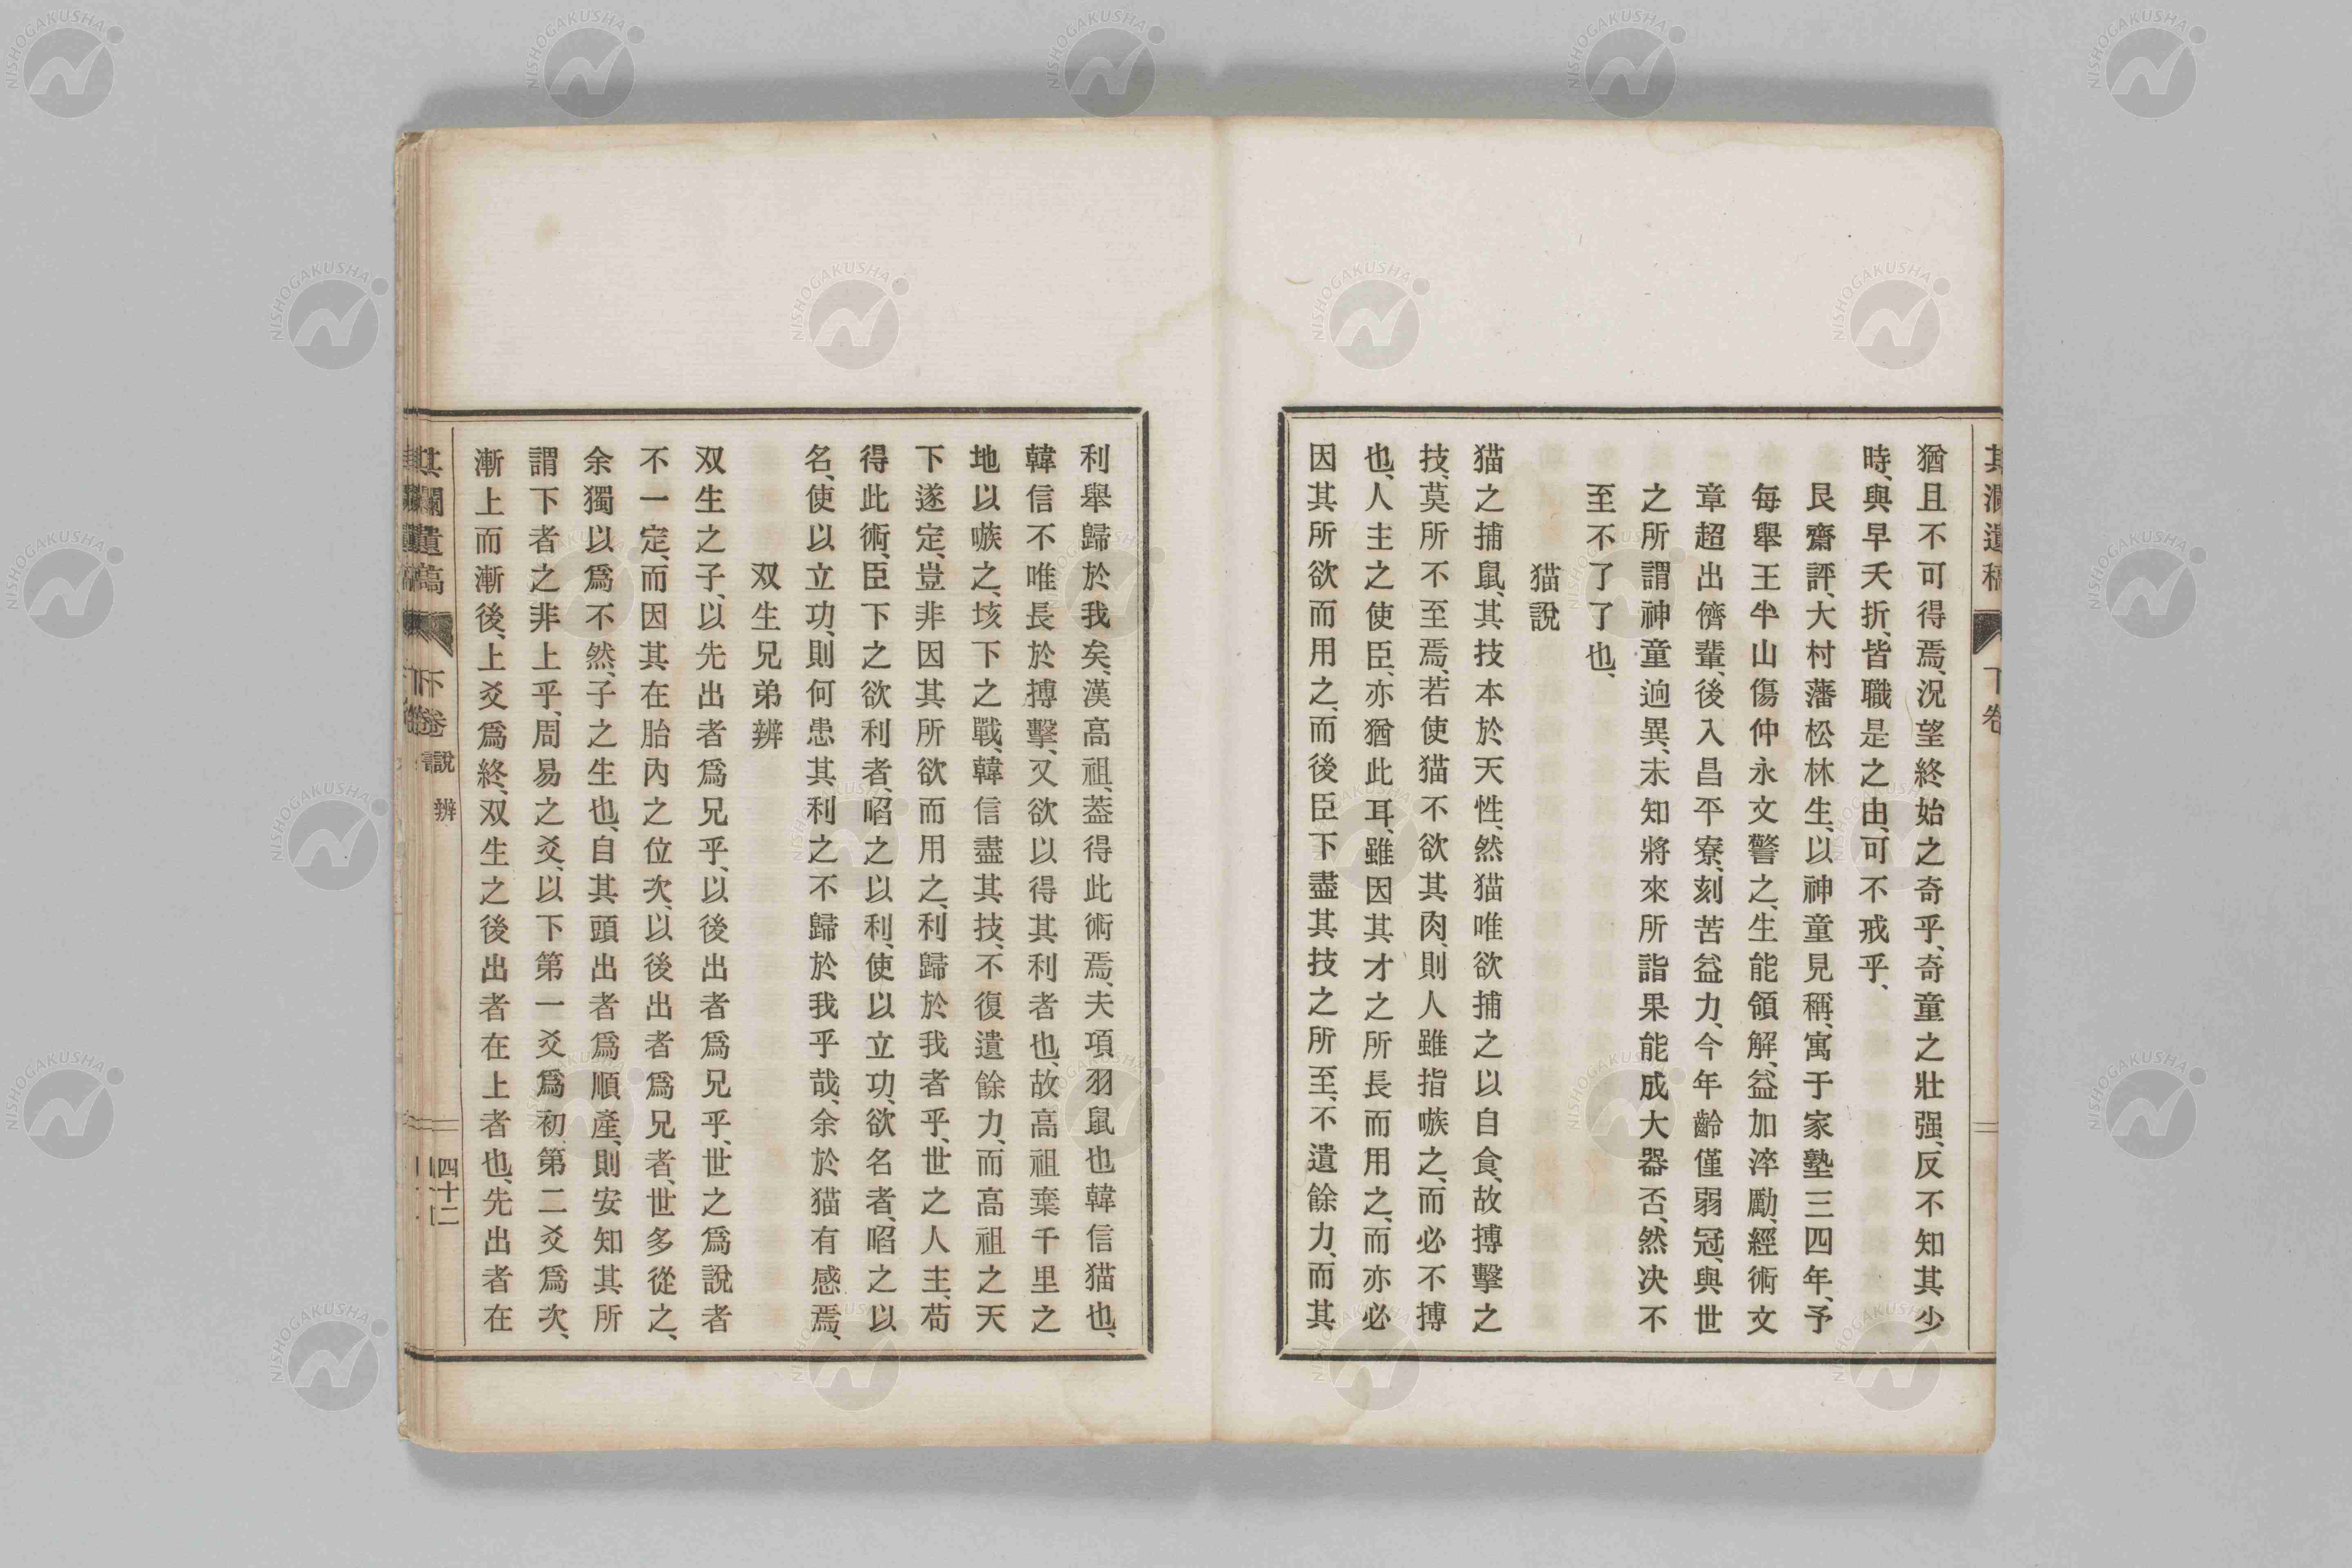 猶且不可得焉、況望終始之奇乎、奇童之壯强、反不知其少
時、與早夭折、皆職是之由、可不戒乎、
艮齋評、大村藩松林生、以神童見稱、寓于家塾三四年、予
每舉王半山傷仲永文警之、生能領解、益加淬勵、經術文
章超出儕輩、後入昌平寮、刻苦益力、今年齡僅弱冠、與世
之所謂神童逈異、未知將來所詣果能成大器否、然决不
至不了了也、
猫說
猫之捕鼠、其技本於天性、然猫唯欲捕之以自食、故搏擊之
技、莫所不至焉、若使猫不欲其肉、則人雖指嗾之、而必不搏
也、人主之使臣、亦猶此耳、雖因其才之所長而用之、而亦必
因其所欲而用之、而後臣下盡其技之所至、不遺餘力、而其
利舉歸於我矣、漢高祖、葢得此術焉、夫項羽鼠也韓信猫也、
韓信不唯長於搏擊、又欲以得其利者也、故高祖棄千里之
地以嗾之、垓下之戰、韓信盡其技、不復遺餘力、而高祖之天
下遂定、豈非因其所欲而用之、利歸於我者乎、世之人主、苟
得此術、臣下之欲利者、啗之以利、使以立功、欲名者、啗之以
名、使以立功、則何患其利之不歸於我乎哉、余於猫有感焉、
双生兄弟辨
双生之子、以先出者爲兄乎、以後出者爲兄乎、世之爲說者
不一定、而因其在胎內之位次、以後出者爲兄者、世多從之、
余獨以爲不然、子之生也、自其頭出者爲順產、則安知其所
謂下者之非上乎、周易之爻、以下第一爻爲初、第二爻爲次、
漸上而漸後、上爻爲終、双生之後出者在上者也、先出者在
下卷 說 辨
四十二